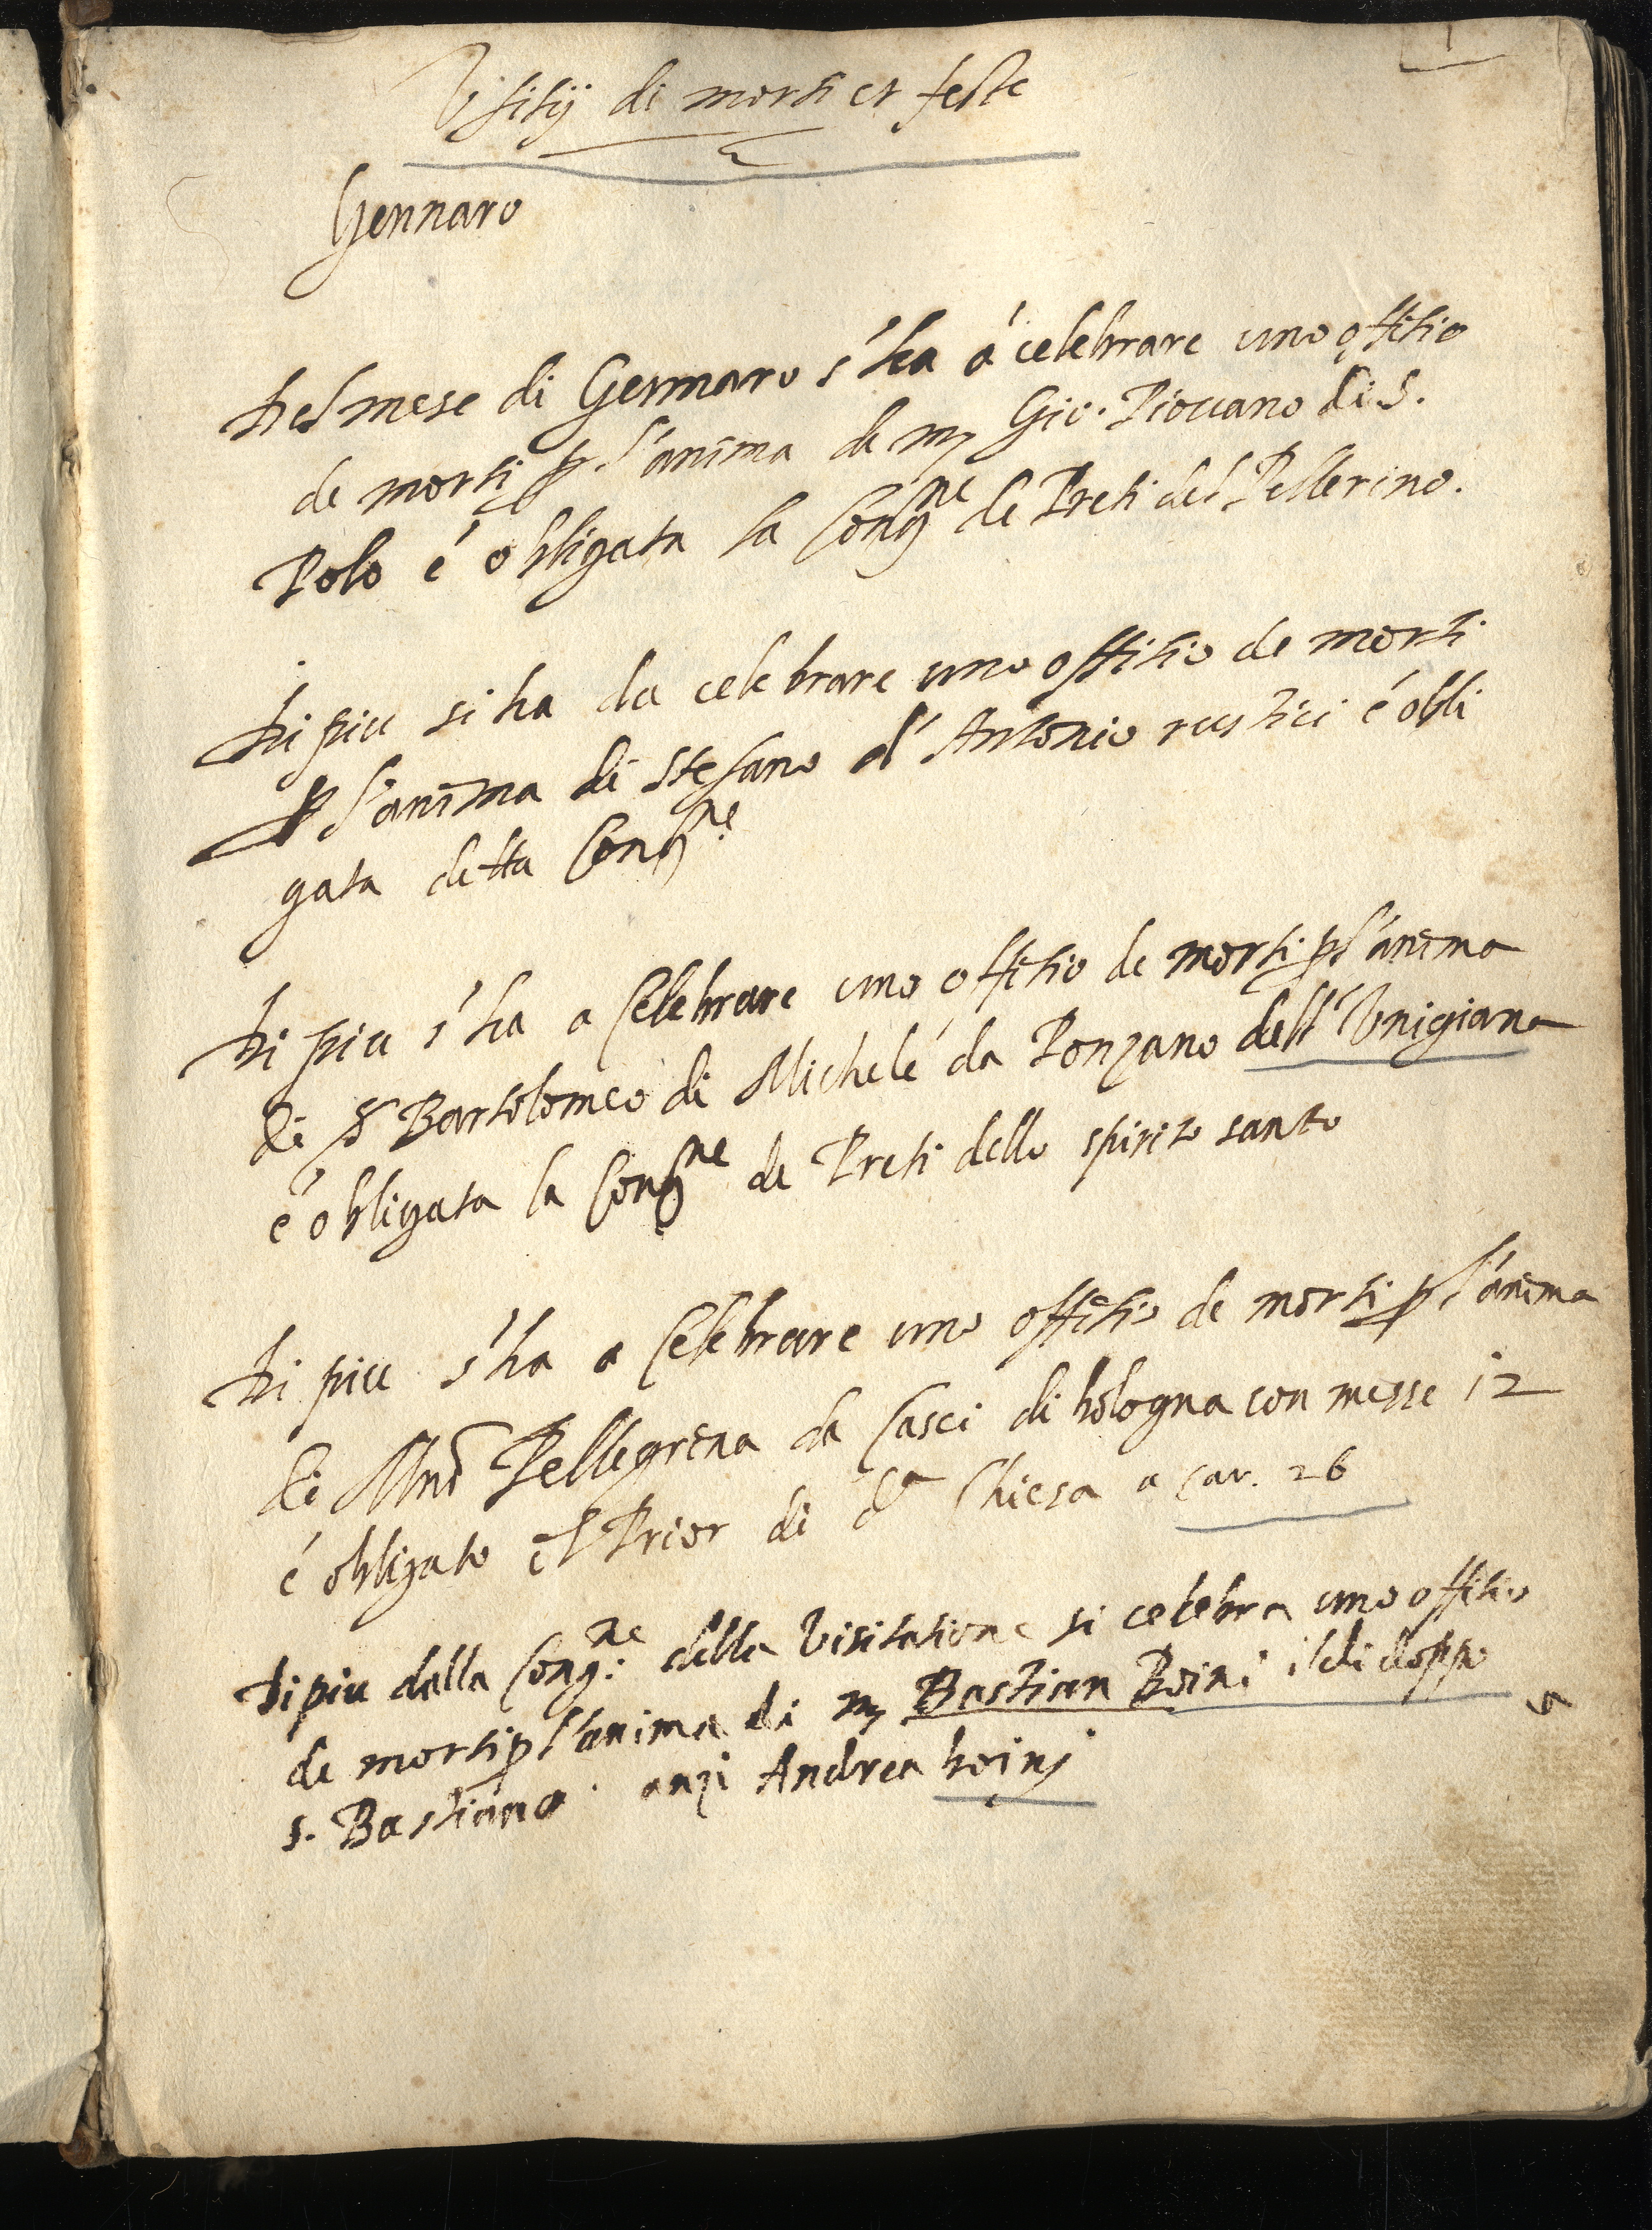 1
Ufitij di morti et feste
Gennaro
Del mese di Gennaro s'ha à celebrare uno offitio
de morti p l'anima de m Gio. Piovano di S.
Polo é obligata la Congne de Preti del Pellerino.
Di piu si ha da celebrare uno offitio de morti
p l'anima di Stefano d'Antonio rustici é obli
gata detta Congne
Di piu s'ha a Celebrare uno offitio de morti p l'anima
di Bartolomeo di Michele da Ponzano dell'Unigiana
é obligata la Congne de Preti dello spirito santo
Di piu s'ha a Celebrare uno offitio de morti p l'anima
di Pellegrina da Casci di bologna con messe 12
é obligato il Prior di da Chiesa a car. 26
Di piu dalla Congne della Visitatione si celebra uno offitio
de morti p l'anima di m Bastian Boini il di doppo
s. Bastiano. anzi Andrea boinj